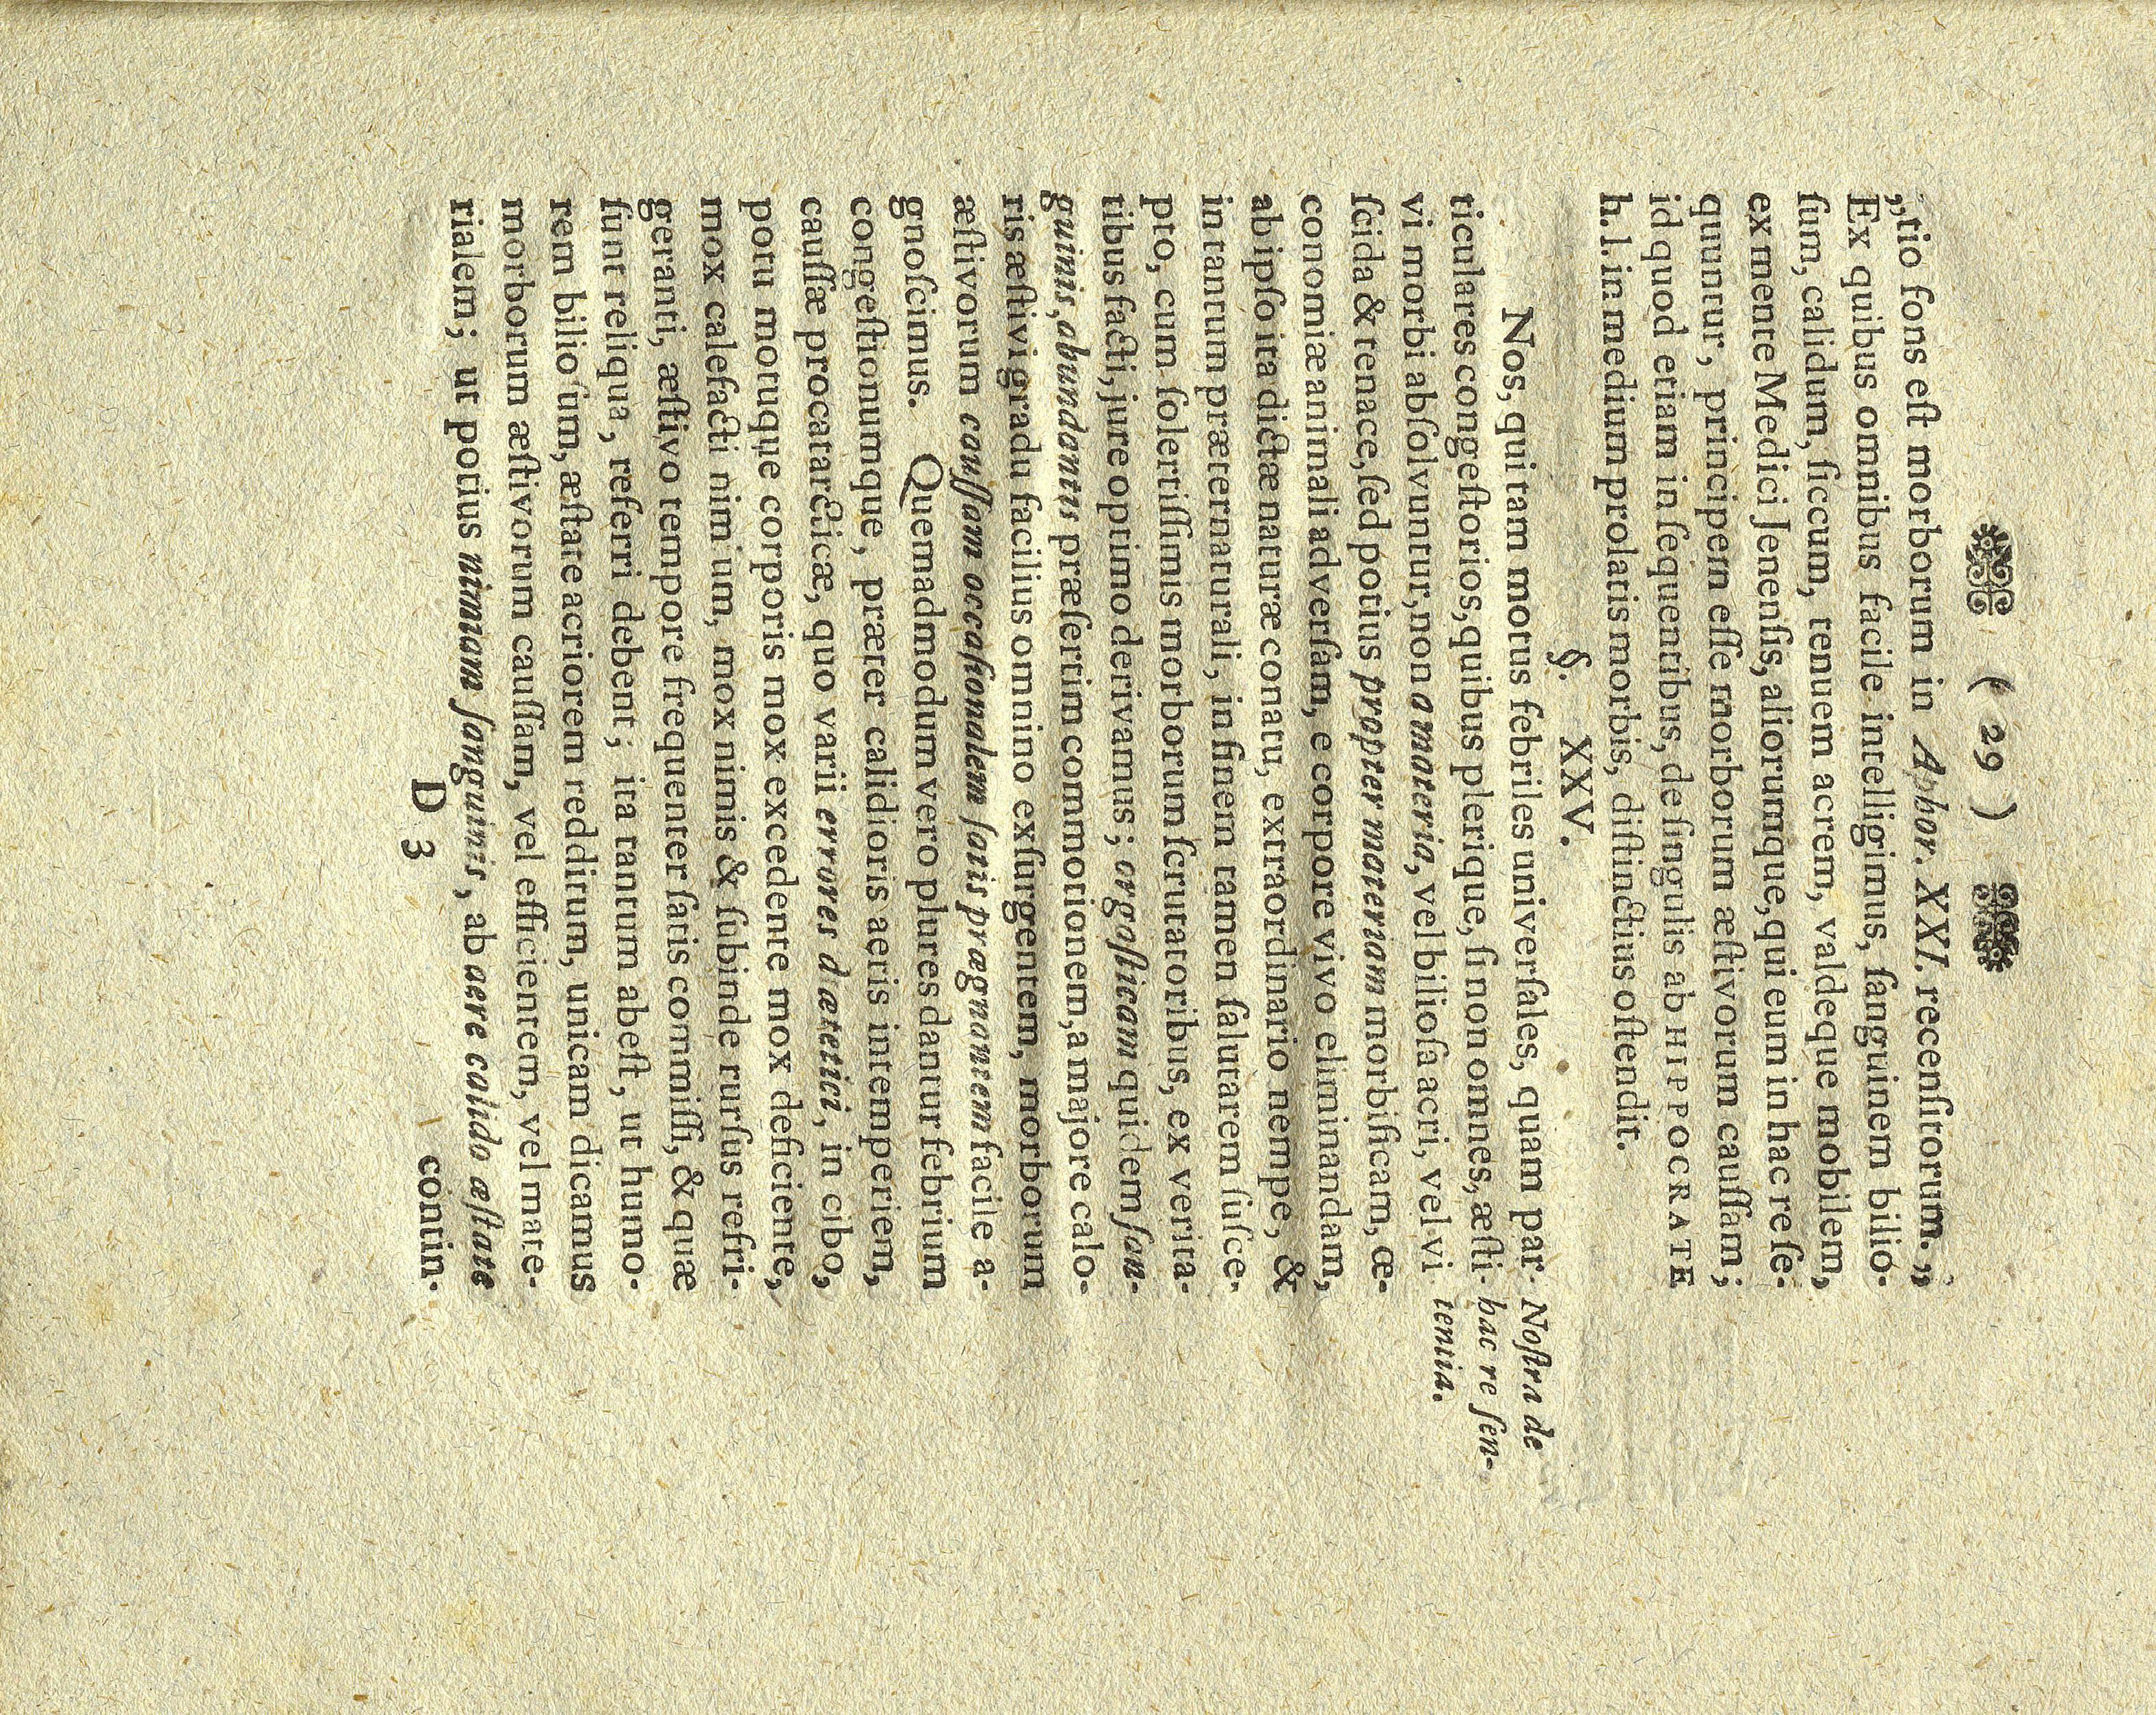 ( 29 )
„tio fons eſt morborum in Aphor. XXI. recenſitorum. „
Ex quibus omnibus facile intelligimus, ſanguinem bilio-
ſum, calidum, ſiccum, tenuem acrem, valdeque mobilem,
ex mente Medici Jenenſis, aliorumque, qui eum in hac re ſe-
quuntur, principem eſſe morborum æſtivorum cauſſam;
id quod etiam in ſequentibus, de ſingulis ab HIPPOCRATE
h. l. in medium prolatis morbis, diſtinctius oſtendit.
§. XXV.
Nos, qui tam motus febriles univerſales, quam par-
ticulares congeſtorios, quibus plerique, ſi non omnes, æſti-
vi morbi abſolvuntur, non a materia, vel bilioſa acri, vel vi-
ſcida & tenace, ſed potius propter materiam morbificam, œ-
conomiæ animali adverſam, e corpore vivo eliminandam,
ab ipſo ita dictæ naturæ conatu, extraordinario nempe, &
in tantum præternaturali, in finem tamen ſalutarem ſuſce-
pto, cum ſolertiſſimis morborum ſcrutatoribus, ex verita-
tibus facti, jure optimo derivamus; orgaſticam quidem ſan-
guinis, abundantis præſertim commotionem, a majore calo-
ris æſtivi gradu facilius omnino exſurgentem, morborum
æſtivorum cauſſam occaſionalem ſatis prægnantem facile a-
gnoſcimus. Quemadmodum vero plures dantur febrium
congeſtionumque, præter calidioris aeris intemperiem,
cauſſæ procatarcticæ, quo varii errores diætetici, in cibo,
potu motuque corporis mox excedente mox deficiente,
mox calefacti nimium, mox nimis & ſubinde rurſus refri-
geranti, æſtivo tempore frequenter ſatis commiſſi, & quæ
ſunt reliqua, referri debent; ita tantum abeſt, ut humo-
rem bilioſum, æſtate acriorem redditum, unicam dicamus
morborum æſtivorum cauſſam, vel efficientem, vel mate-
rialem; ut potius nimiam ſanguinis, ab aere calido æſtate
D 3
contin-
Noſtra de
hac re ſen-
tentia.